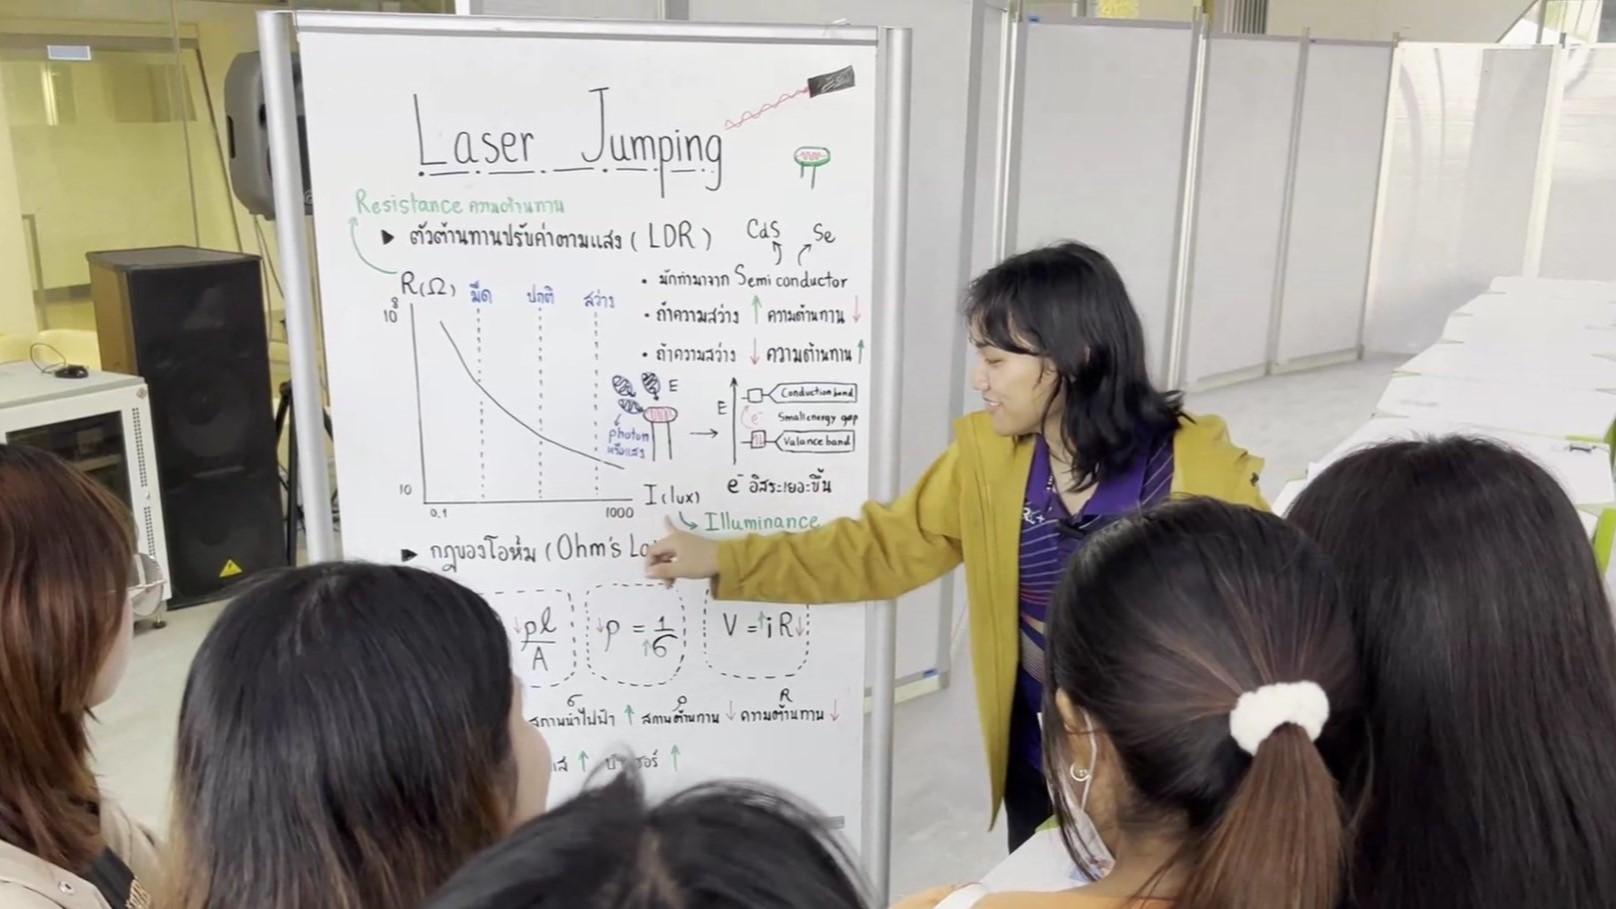 Laser Jumping
Resistance ความต้านทาน
▶ ตัวต้านทานปรับค่าตามแสง ( LDR )
CdS Se
• มักทำมาจาก Semiconductor
• ถ้าความสว่าง ↑ ความต้านทาน ↓
• ถ้าความสว่าง ↓ ความต้านทาน ↑
R (Ω) มืด ปกติ สว่าง
10⁸
10
0.1 1000 I (lux)
Illuminance
E
photon
หรือแสง
E
Conduction band
e⁻ Small energy gap
Valance band
e⁻ อิสระเยอะขึ้น
▶ กฎของโอห์ม ( Ohm's La
↓ρl/A
↓ρ = 1/↑σ
V = ↑i R↓
σ ρ R
สภานำไฟฟ้า ↑ สภานต้านทาน ↓ ความต้านทาน ↓